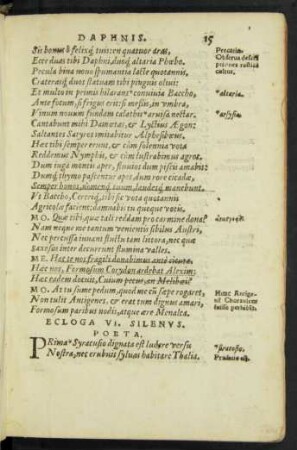 DAPHNIS. 15
Sis bonus ô felixq́; tuis: en quatuor aras,
Ecce duas tibi Daphni, duoq́; altaria Phœbo.
Pocula bina nouo spumantia lacte quotannis,
Craterasq́; duos statuam tibi pinguis oliui:
Et multo in primis hilarans conuiuia Baccho,
Ante focum, si frigus erit: si messis, in vmbra,
Vina nouum fundam calathis * aruisia nectar.
Cantabunt mihi Damœtas, & Lyctius Ægon:
Saltantes Satyros imitabitur Alphesibœus.
Hæc tibi semper erunt, & cùm solennia vota
Reddemus Nymphis, & cùm lustrabimus agros.
Dum iuga montis aper, fluuios dum piscis amabit:
Dumq́; thymo pascentur apes, dum rore cicadæ,
Semper honos, nomenq́; tuum, laudesq́; manebunt.
Vt Baccho, Cereriq́, tibi sic vota quotannis
Agricolæ facient: damnabis tu quoque votis.
MO. Quæ tibi, quæ tali reddam pro carmine dona?
Nam neque me tantum venientis sibilus Austri,
Nec percussa iuuant fluctu tam littora, nec quæ
Saxosas inter decurrunt flumina valles.
ME. Hac te nos fragili donabimus antè cicuta.
Hæc nos, Formosum Corydon ardebat Alexim:
Hæc eadem docuit, Cuium pecus, an Melibœi?
MO. At tu sume pedum, quod me cùm sæpe rogaret,
Non tulit Antigenes, & erat tum dignus amari,
Formosum paribus nodis, atque ære Menalca.
ECLOGA VI. SILENVS.
POETA.
PRima * Syracusio dignata est ludere versu
Nostra, nec erubuit syluas habitare Thalia.
* altaria.
Hunc
* syracosio.